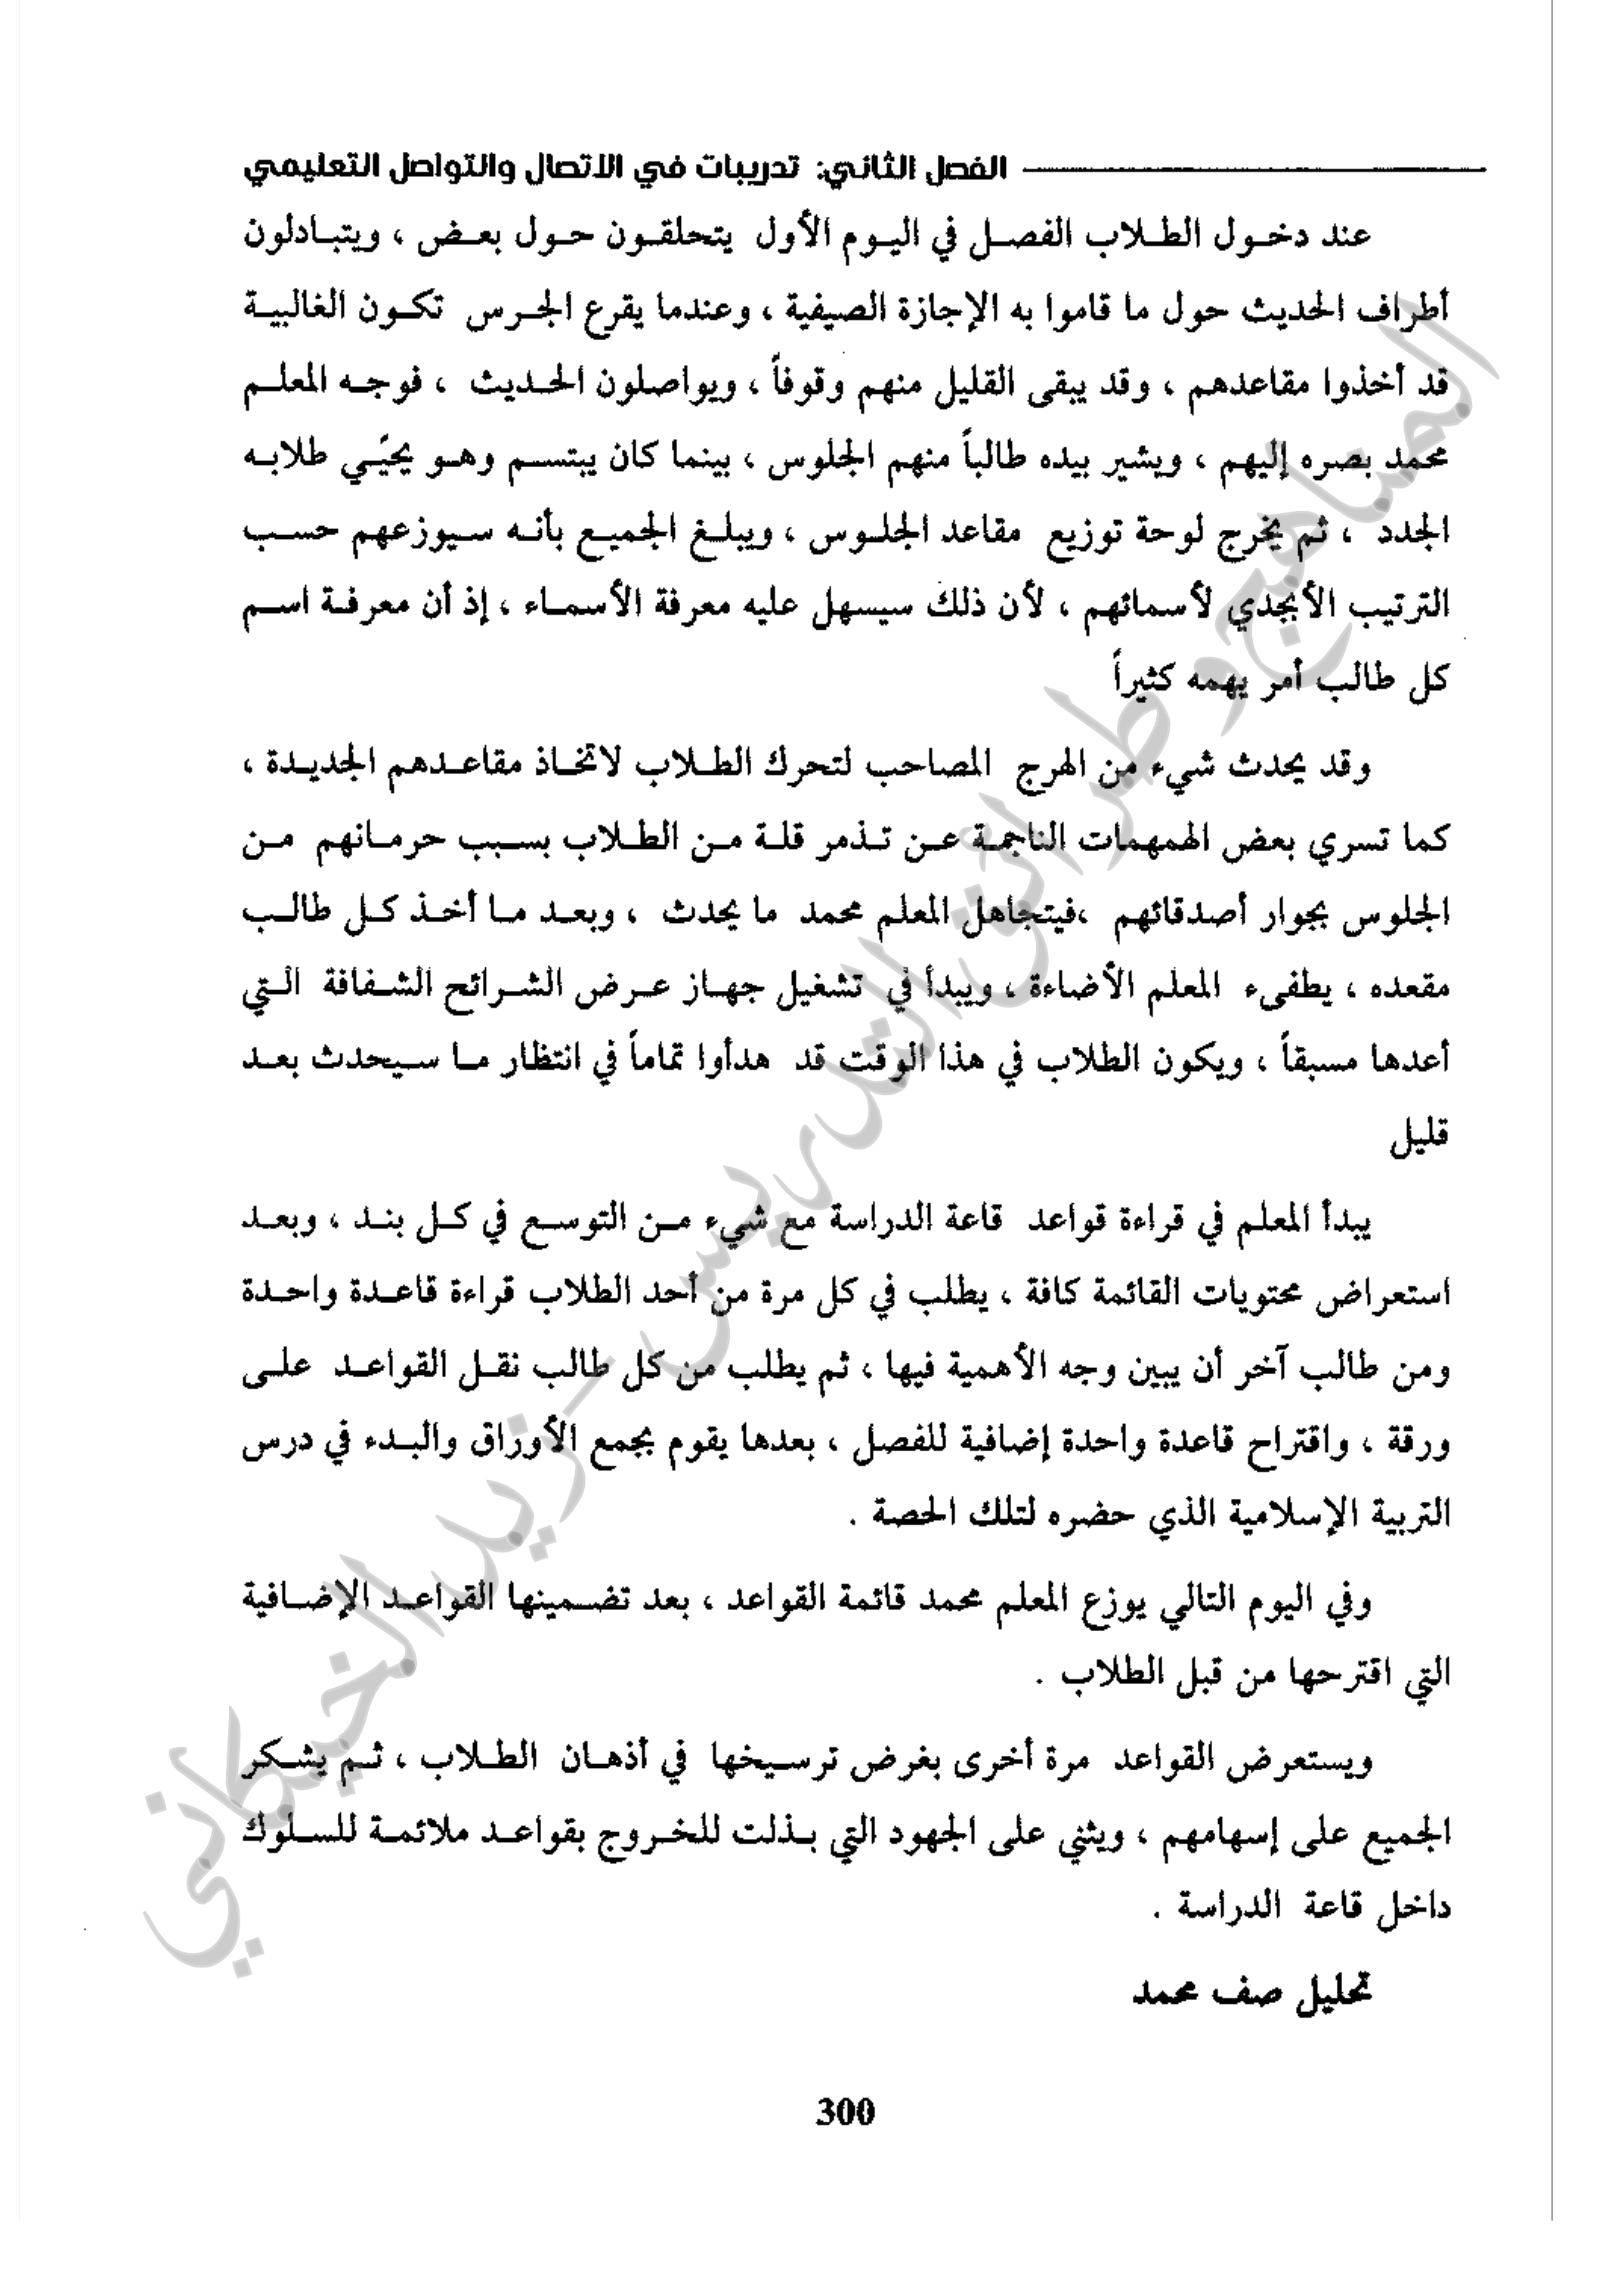 الفصل الثاني: تدريبات في الاتصال والتواصل التعليمي
عند دخول الطلاب الفصل في اليوم الأول يتحلقون حول بعض ، ويتبادلون
أطراف الحديث حول ما قاموا به الإجازة الصيفية ، وعندما يقرع الجرس تكون الغالبية
قد أخذوا مقاعدهم ، وقد يبقى القليل منهم وقوفاً ، ويواصلون الحديث ، فوجه المعلم
محمد بصره إليهم ، ويشير بيده طالباً منهم الجلوس ، بينما كان يبتسم وهو يحيّي طلابه
الجدد ، ثم يخرج لوحة توزيع مقاعد الجلوس ، ويبلغ الجميع بأنه سيوزعهم حسب
الترتيب الأبجدي لأسمائهم ، لأن ذلك سيسهل عليه معرفة الأسماء ، إذ أن معرفة اسم
كل طالب أمر يهمه كثيراً
وقد يحدث شيء من الهرج المصاحب لتحرك الطلاب لاتخاذ مقاعدهم الجديدة ،
كما تسري بعض الهمهمات الناجمة عن تذمر قلة من الطلاب بسبب حرمانهم من
الجلوس بجوار أصدقائهم ،فيتجاهل المعلم محمد ما يحدث ، وبعد ما أخذ كل طالب
مقعده ، يطفىء المعلم الأضاءة ، ويبدأ في تشغيل جهاز عرض الشرائح الشفافة التي
أعدها مسبقاً ، ويكون الطلاب في هذا الوقت قد هدأوا تماماً في انتظار ما سيحدث بعد
قليل
يبدأ المعلم في قراءة قواعد قاعة الدراسة مع شيء من التوسع في كل بند ، وبعد
استعراض محتويات القائمة كافة ، يطلب في كل مرة من أحد الطلاب قراءة قاعدة واحدة
ومن طالب آخر أن يبين وجه الأهمية فيها ، ثم يطلب من كل طالب نقل القواعد على
ورقة ، واقتراح قاعدة واحدة إضافية للفصل ، بعدها يقوم بجمع الأوراق والبدء في درس
التربية الإسلامية الذي حضره لتلك الحصة .
وفي اليوم التالي يوزع المعلم محمد قائمة القواعد ، بعد تضمينها القواعد الإضافية
التي اقترحها من قبل الطلاب .
ويستعرض القواعد مرة أخرى بغرض ترسيخها في أذهان الطلاب ، ثم يشكر
الجميع على إسهامهم ، ويثني على الجهود التي بذلت للخروج بقواعد ملائمة للسلوك
داخل قاعة الدراسة .
تحليل صف محمد
300
المناهج وطرائق التدريس - زيد الخيكاني